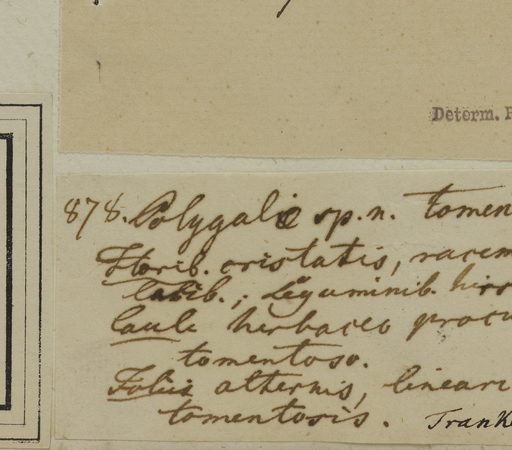 Determ.
878. Polygalæ sp. n. tomen
Florib. cristatis, racem
Leguminib. hirs
Caule herbaceo procu
tomentoso.
Foliis alternis, lineari
tomentosis. Tranke